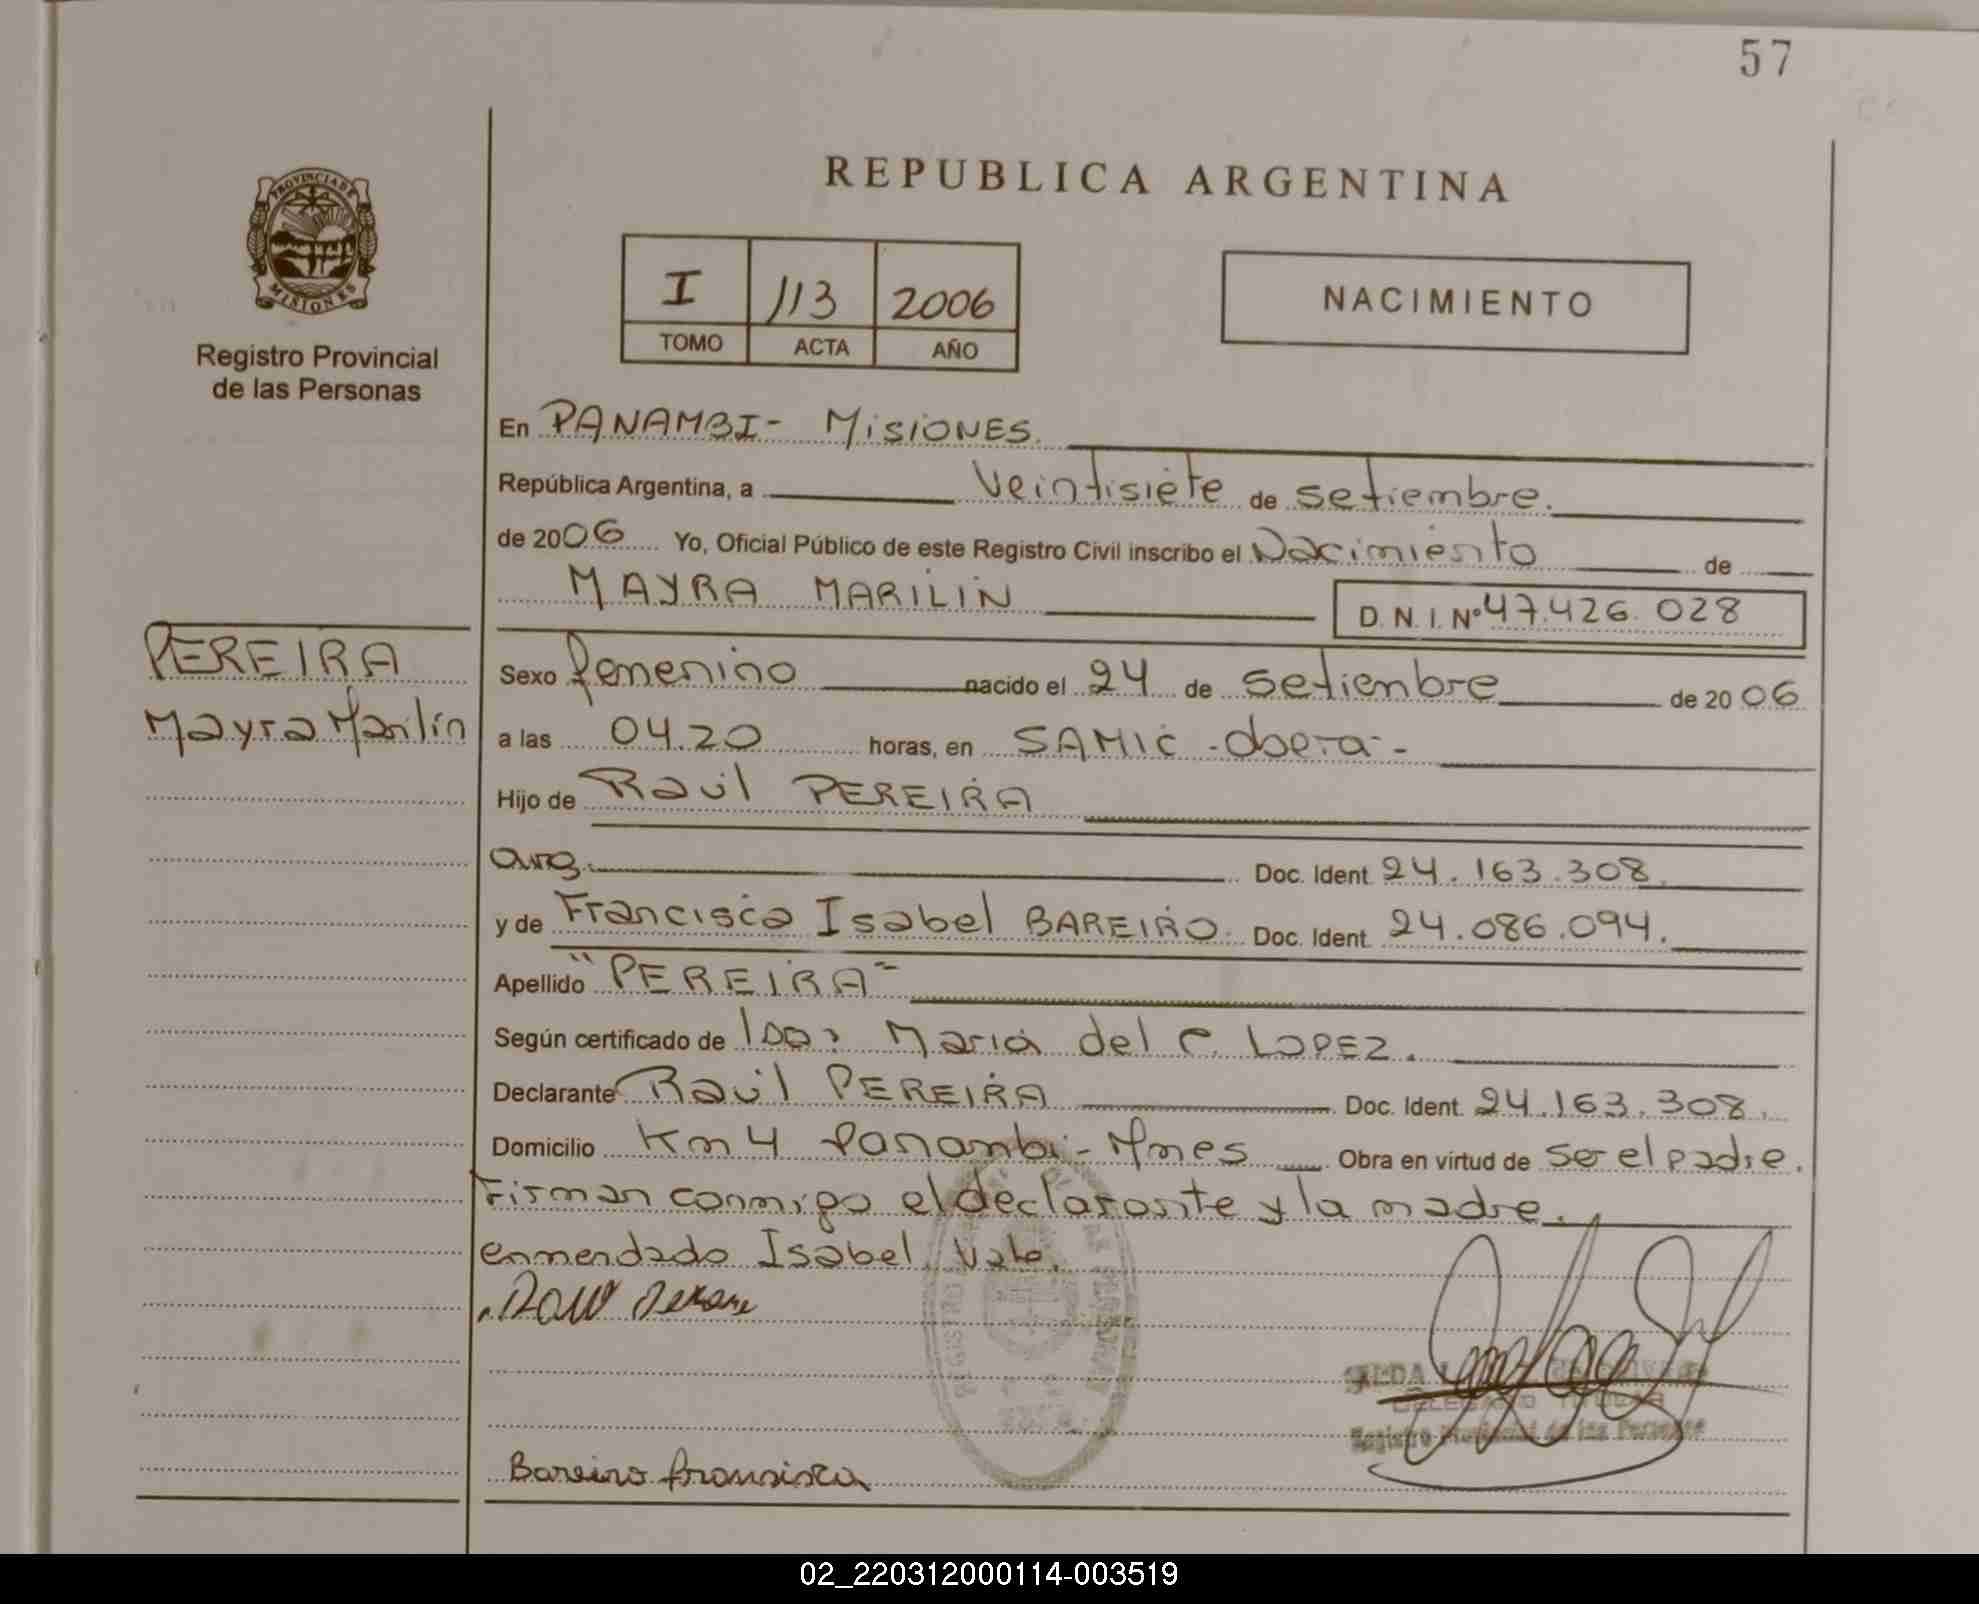 57
PROVINCIA DE
MISIONES
Registro Provincial
de las Personas
REPUBLICA ARGENTINA
I 113 2006
TOMO ACTA AÑO
NACIMIENTO
En PANAMBI - MisiONES.
República Argentina, a veintisiete de setiembre.
de 2006 Yo, Oficial Público de este Registro Civil inscribo el Nacimiento de
MAYRA MARILIN D. N. I. Nº 47.426.028
PEREIRA
Mayra Marilin
Sexo femenino nacido el 24 de setiembre de 2006
a las 04.20 horas, en SAMIC - obera -
Hijo de Raúl PEREIRA
arg. Doc. Ident. 24.163.308.
y de Francisca Isabel BAREIRO. Doc. Ident. 24.086.094.
Apellido "PEREIRA"
Según certificado de Maria del C. LOPEZ.
Declarante Raúl PEREIRA Doc. Ident. 24.163.308.
Domicilio Km 4 Panambi - Mnes Obra en virtud de ser el padre.
Firman conmigo el declarante y la madre.
enmendado Isabel. Vale.
Bareiro fransisca
DELEGADO TITULAR
Registro Provincial de las Personas
02_220312000114-003519